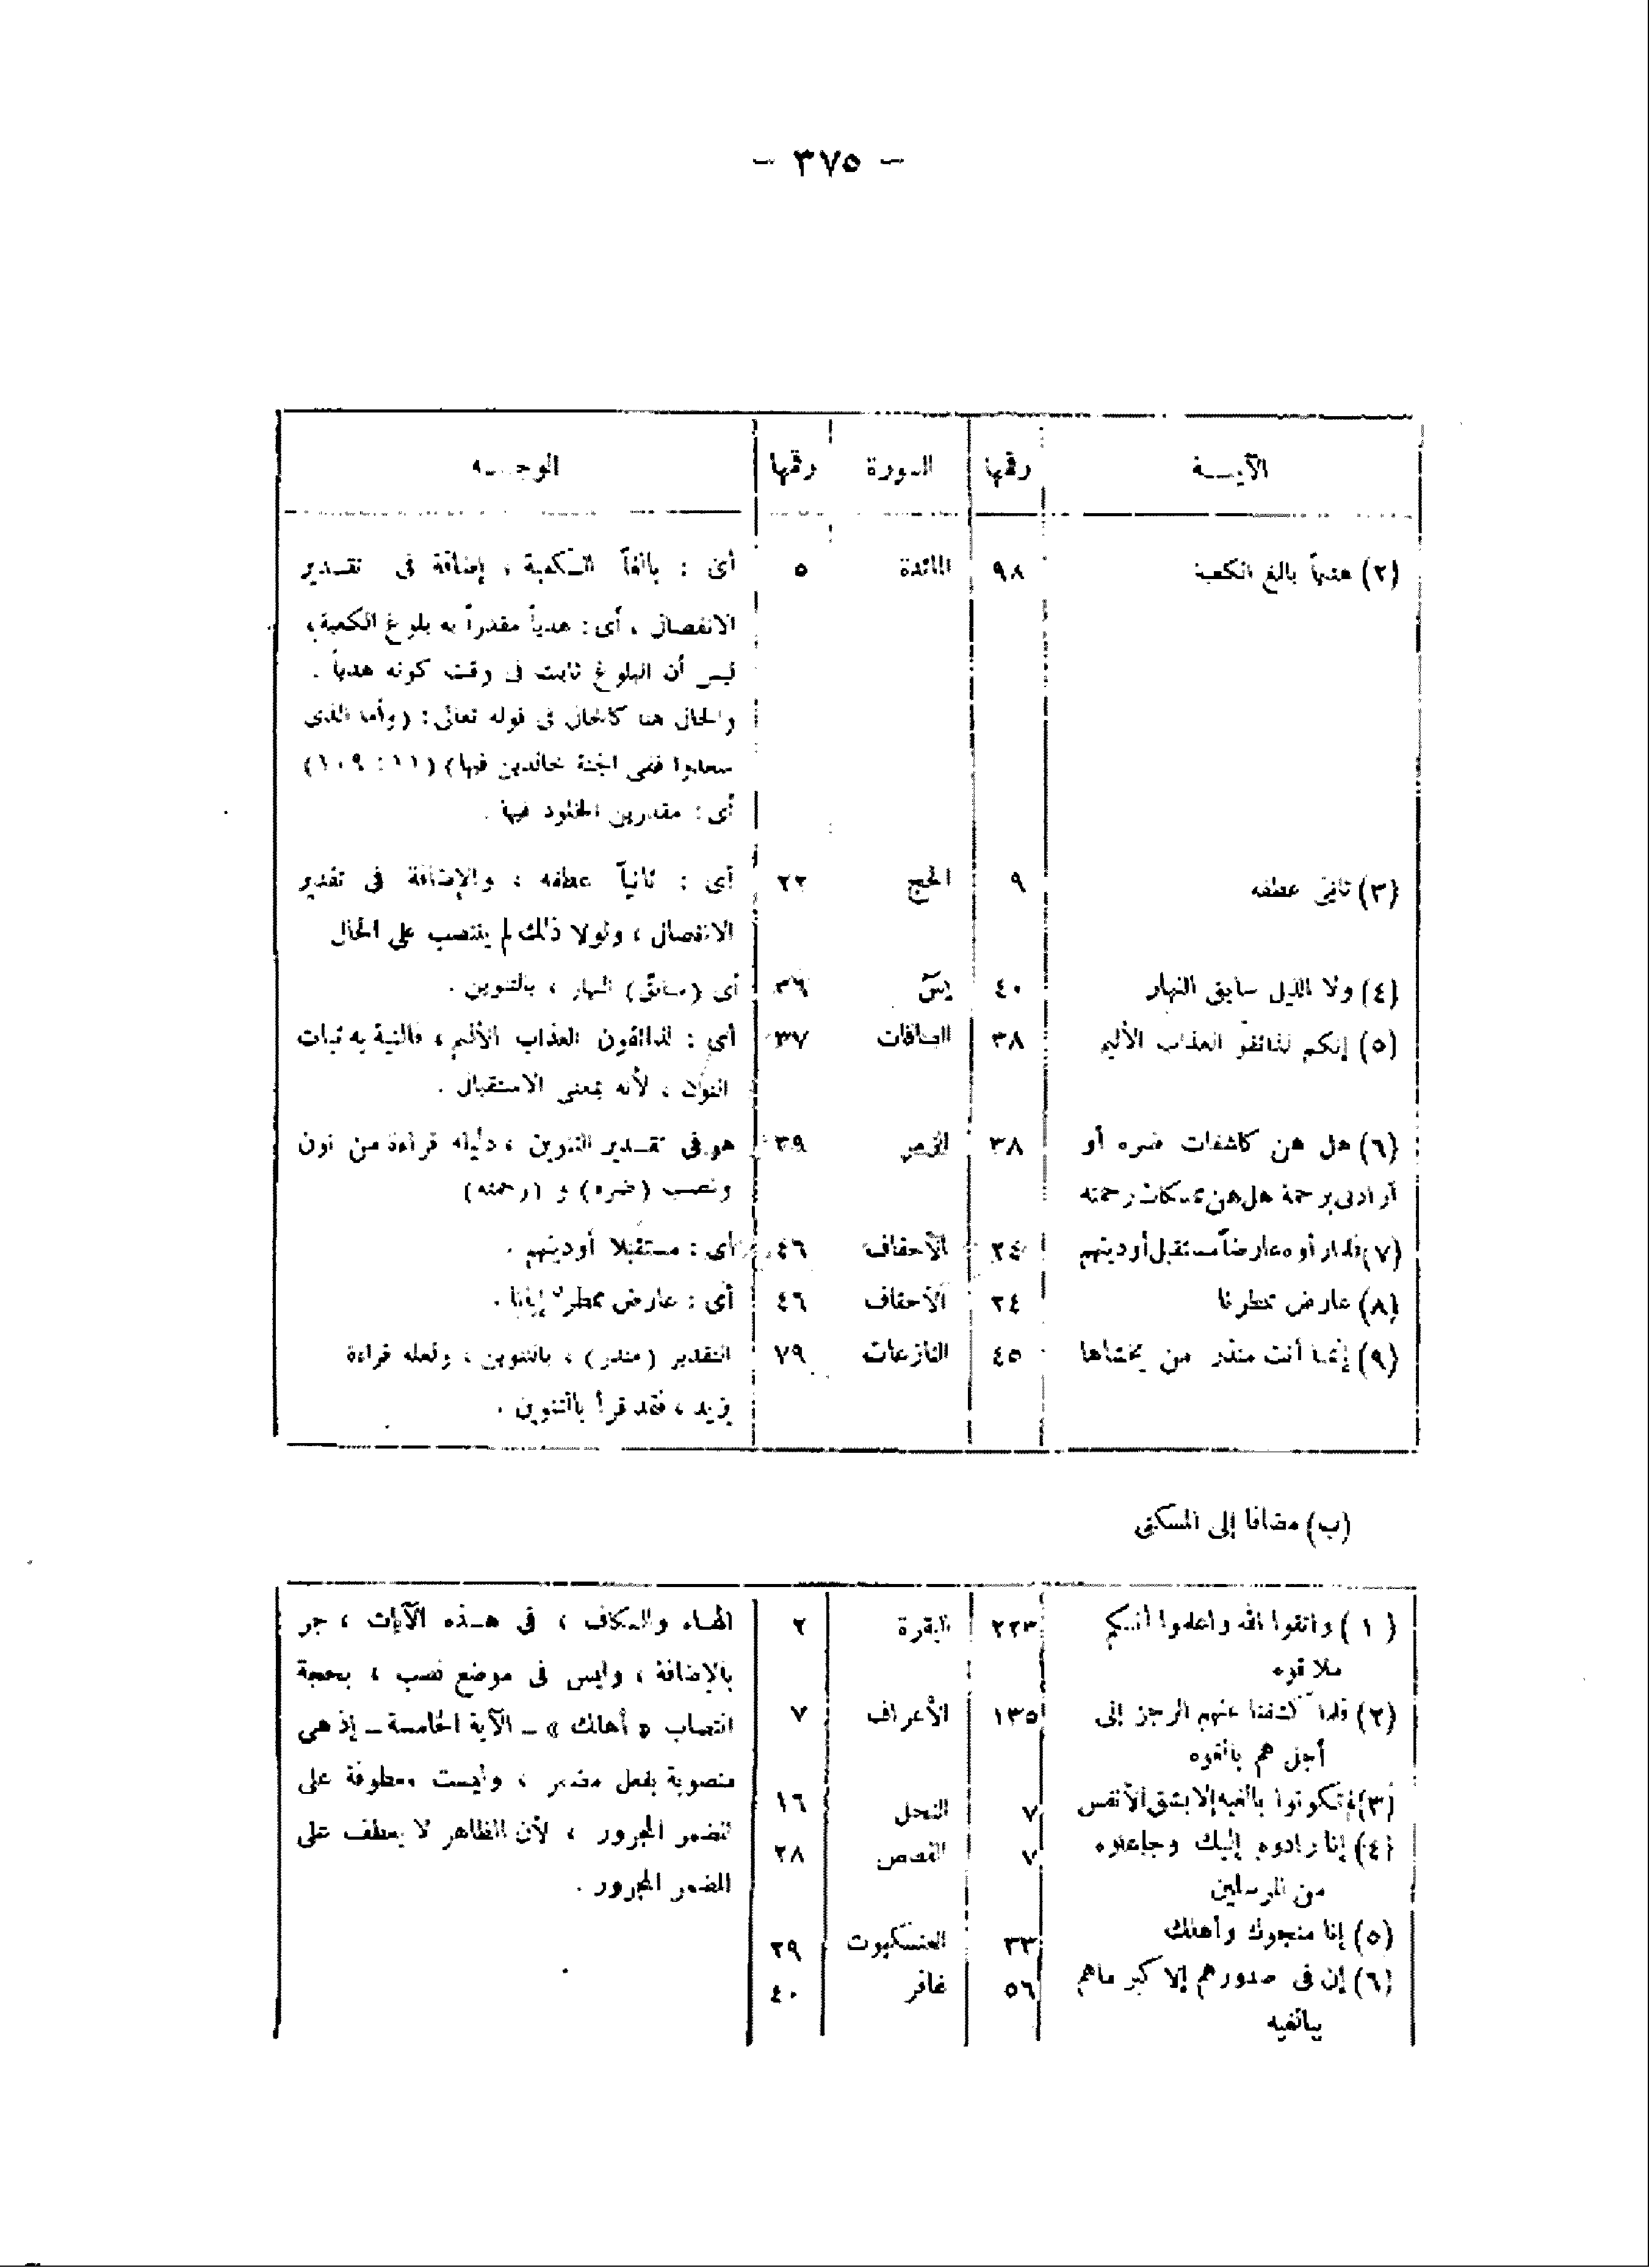 - ٣٧٥ -
الآيــة رقمها السورة رقمها الوجــه
(٢) هدياً بالغ الكعبة ٩٨ المائدة ٥ أى : بالغاً الكعبة ، إضافة فى تقــدير
الانفصال ، أى : هدياً مقدراً به بلوغ الكعبة ،
ليس أن البلوغ ثابت فى وقت كونه هدياً .
والحال هنا كالحال فى قوله تعالى : (وأما الذى
سعدوا ففى الجنة خالدين فيها) (١١ : ١٠٩)
أى : مقدرين الخلود فيها .
(٣) ثانى عطفه ٩ الحج ٢٢ أى : ثانياً عطفه ، والإضافة فى تقدير
الانفصال ، ولولا ذلك لم ينتصب على الحال
(٤) ولا الليل سابق النهار ٤٠ يس ٣٦ أى (سابق) النهار ، بالتنوين .
(٥) إنكم لذائقو العذاب الأليم ٣٨ الصافات ٣٧ أى : لذائقون العذاب الأليم ، فالنية به ثبات
النون ، لأنه بمعنى الاستقبال .
(٦) هل هن كاشفات ضره أو ٣٨ الزمر ٣٩ هو فى تقــدير التنوين ، دليله قراءة من نون
أرادنى برحمة هل هن ممسكات رحمته ونصب (ضره) و (رحمته)
(٧) فلما رأوه عارضاً مستقبل أوديتهم ٢٤ الأحقاف ٤٦ أى : مستقبلا أوديتهم .
(٨) عارض ممطرنا ٢٤ الأحقاف ٤٦ أى : عارض ممطر إيانا .
(٩) إنما أنت منذر من يخشاها ٤٥ النازعات ٧٩ التقدير (منذر) ، بالتنوين ، ولعله قراءة
يزيد ، فقد قرأ بالتنوين .
(ب) مضافا إلى المكنى
(١) واتقوا الله واعلموا أنكم ٢٢٣ البقرة ٢ الهــاء والكاف ، فى هــذه الآيات ، جر
ملاقوه بالإضافة ، وليس فى موضع نصب ، بحجة
(٢) فلما كشفنا عنهم الرجز إلى ١٣٥ الأعراف ٧ انتصاب « أهلك » ــ الآية الخامسة ــ إذ هى
أجل هم بالغوه
منصوبة بفعل مضمر ، وليست معطوفة على
(٣) لم تكونوا بالغيه إلا بشق الأنفس ٧ النحل ١٦
(٤) إنا رادوه إليك وجاعلوه ٧ القصص ٢٨ المضمر المجرور ، لأن الظاهر لا يعطف على
من المرسلين المضمر المجرور .
(٥) إنا منجوك وأهلك ٣٣ العنكبوت ٢٩
(٦) إن فى صدورهم إلا كبر ماهم ٥٦ غافر ٤٠
ببالغيه